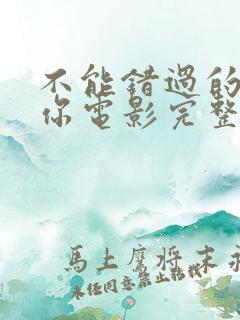 不能錯過的
你電影完整
馬上鷹將末
未经同意禁止转载